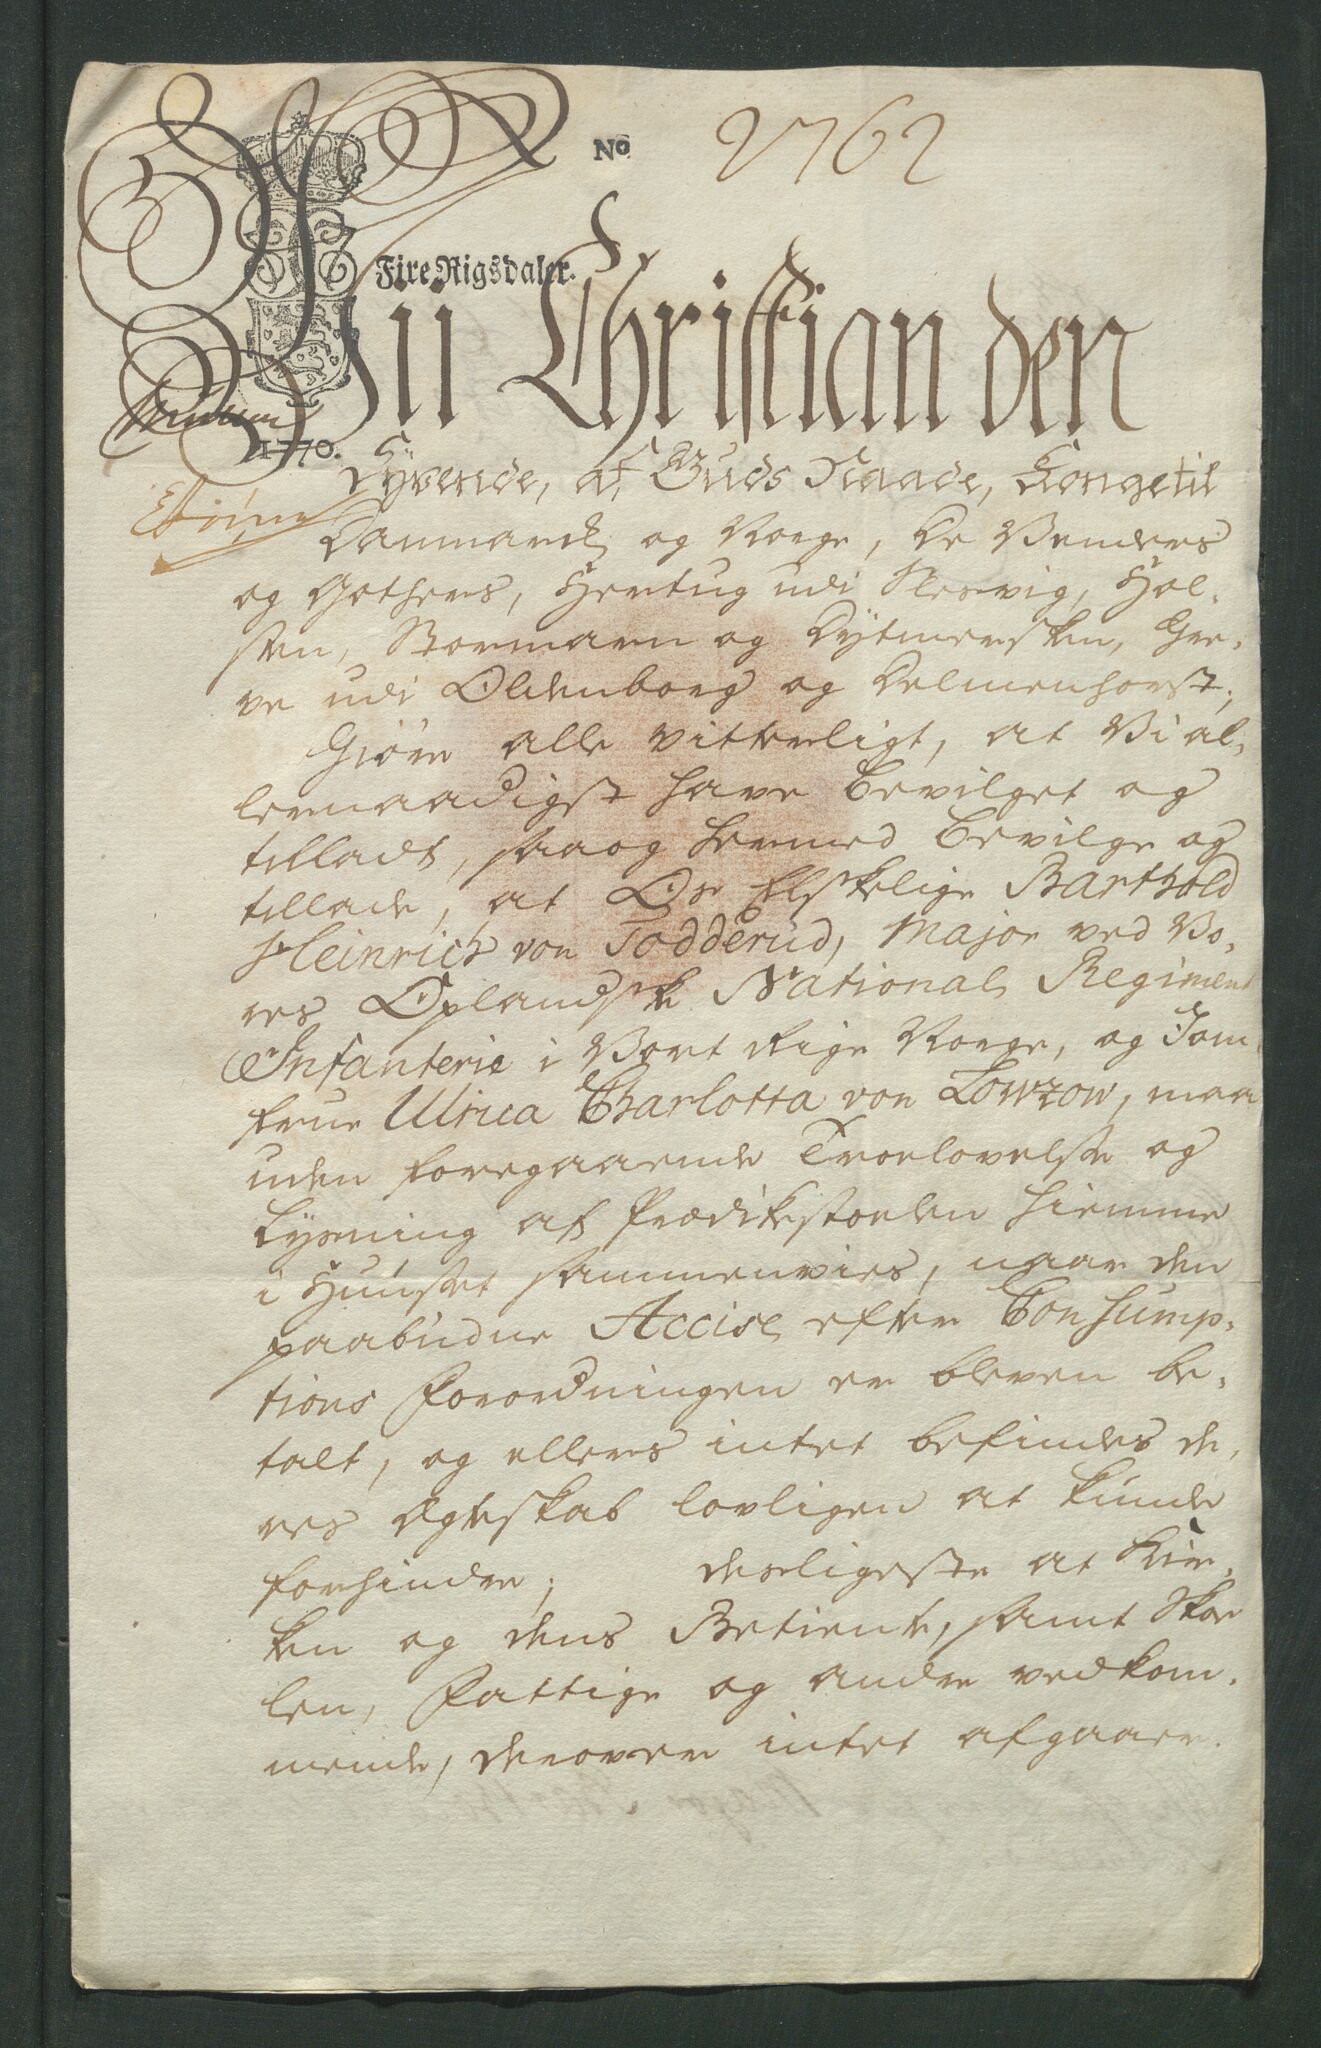 No 2762
Fire Rigsdaler.
Vii Christian den
1770.
Syvende, af Guds Naade, Konge til
Danmarck og Norge, De Venders
og Gothers, Hertug udi Slesvig, Hol-
sten, Stormarn og Dytmersken, Gre-
ve udi Oldenborg og Delmenhorst;
Giöre alle vitterligt, at Vi al-
lernaadigst have bevilget og
tilladt, saa og hermed bevilge og
tillade, at Os Elskelige Barthold
Heinrich von Todderud, Major ved Vo-
res Oplandske National Regiment
Infanterie i Vort Rige Norge, og Jom-
frue Ulrica Charlotta von Lowzow, maa
uden foregaaende Troelovelse og
Lysning af Prædikestoelen hiemme
i Huuset sammenvies, naar den
paabudne Accise efter Consump-
tions Forordningen er bleven be-
talt, og ellers intet befindes de-
res Ægteskab lovligen at kunde
forhindre; desligeste at Kir-
ken og dens Betiente, samt Skoe
len, Fattige og andre vedkom-
mende, derover intet afgaaer.